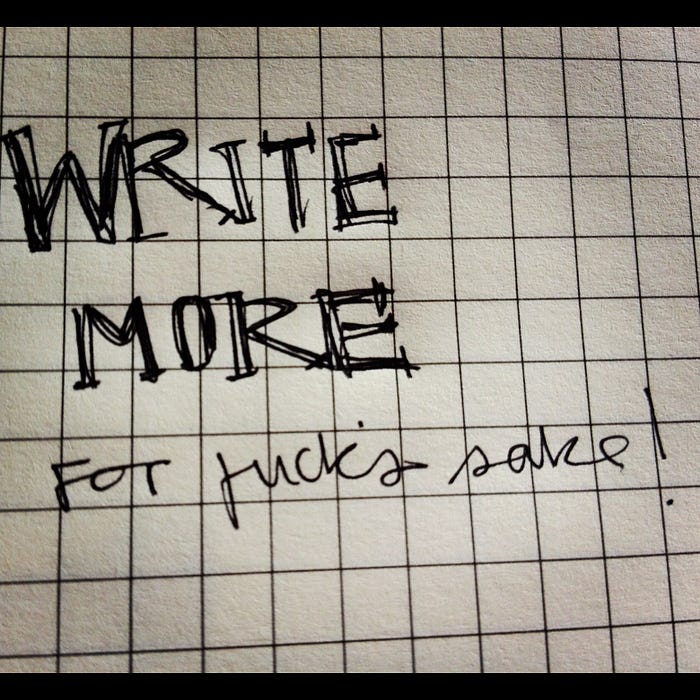 WRITE
MORE
FOR fuck's sake!